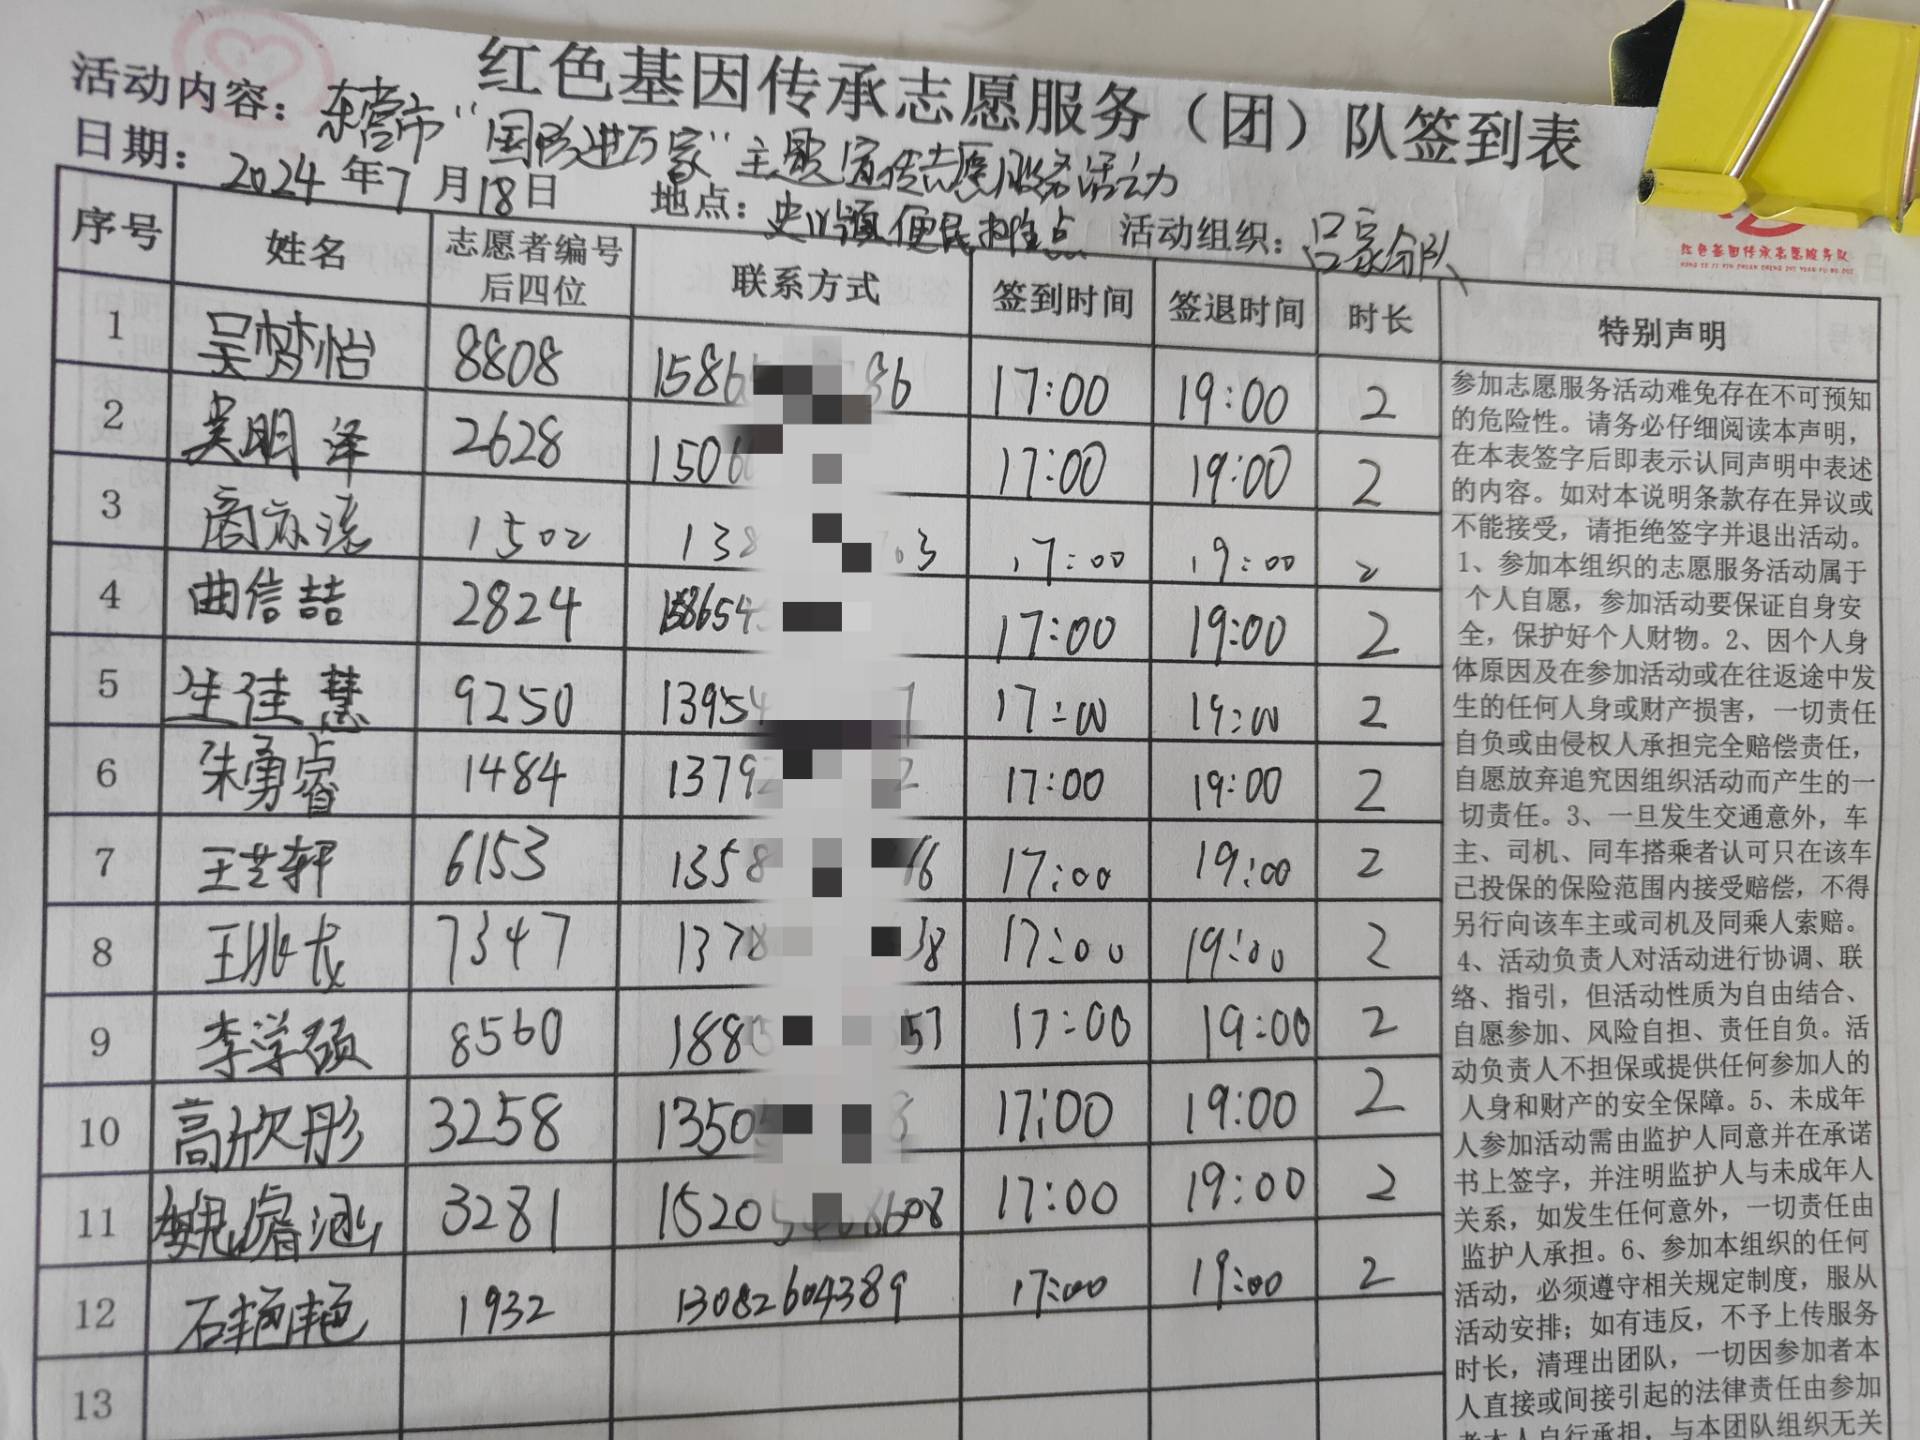 红色基因传承志愿服务（团）队签到表
活动内容：东营市“国防进万家”主题宣传志愿服务活动
日期：2024年7月18日 地点：便民 点 活动组织：吕家分队
红色基因传承志愿服务队
序号 姓名 志愿者编号后四位 联系方式 签到时间 签退时间 时长 特别声明
1 吴梦怡 8808 1586 36 17:00 19:00 2
2 吴明泽 2628 1506 17:00 19:00 2
3 1502 138 03 17:00 19:00 2
4 曲信喆 2824 158654 17:00 19:00 2
5 生佳慧 9250 13954 17:00 19:00 2
6 朱勇睿 1484 1379 2 17:00 19:00 2
7 王艺轩 6153 1358 66 17:00 19:00 2
8 王兆龙 7347 1378 38 17:00 19:00 2
9 李学硕 8560 188 57 17:00 19:00 2
10 高欣彤 3258 1350 8 17:00 19:00 2
11 魏睿涵 3281 1520 608 17:00 19:00 2
12 石艳艳 1932 13082604389 17:00 19:00 2
13
参加志愿服务活动难免存在不可预知
的危险性。请务必仔细阅读本声明，
在本表签字后即表示认同声明中表述
的内容。如对本说明条款存在异议或
不能接受，请拒绝签字并退出活动。
1、参加本组织的志愿服务活动属于
个人自愿，参加活动要保证自身安
全，保护好个人财物。2、因个人身
体原因及在参加活动或在往返途中发
生的任何人身或财产损害，一切责任
自负或由侵权人承担完全赔偿责任，
自愿放弃追究因组织活动而产生的一
切责任。3、一旦发生交通意外，车
主、司机、同车搭乘者认可只在该车
已投保的保险范围内接受赔偿，不得
另行向该车主或司机及同乘人索赔。
4、活动负责人对活动进行协调、联
络、指引，但活动性质为自由结合、
自愿参加、风险自担、责任自负。活
动负责人不担保或提供任何参加人的
人身和财产的安全保障。5、未成年
人参加活动需由监护人同意并在承诺
书上签字，并注明监护人与未成年人
关系，如发生任何意外，一切责任由
监护人承担。6、参加本组织的任何
活动，必须遵守相关规定制度，服从
活动安排；如有违反，不予上传服务
时长，清理出团队，一切因参加者本
人直接或间接引起的法律责任由参加
者本人自行承担，与本团队组织无关